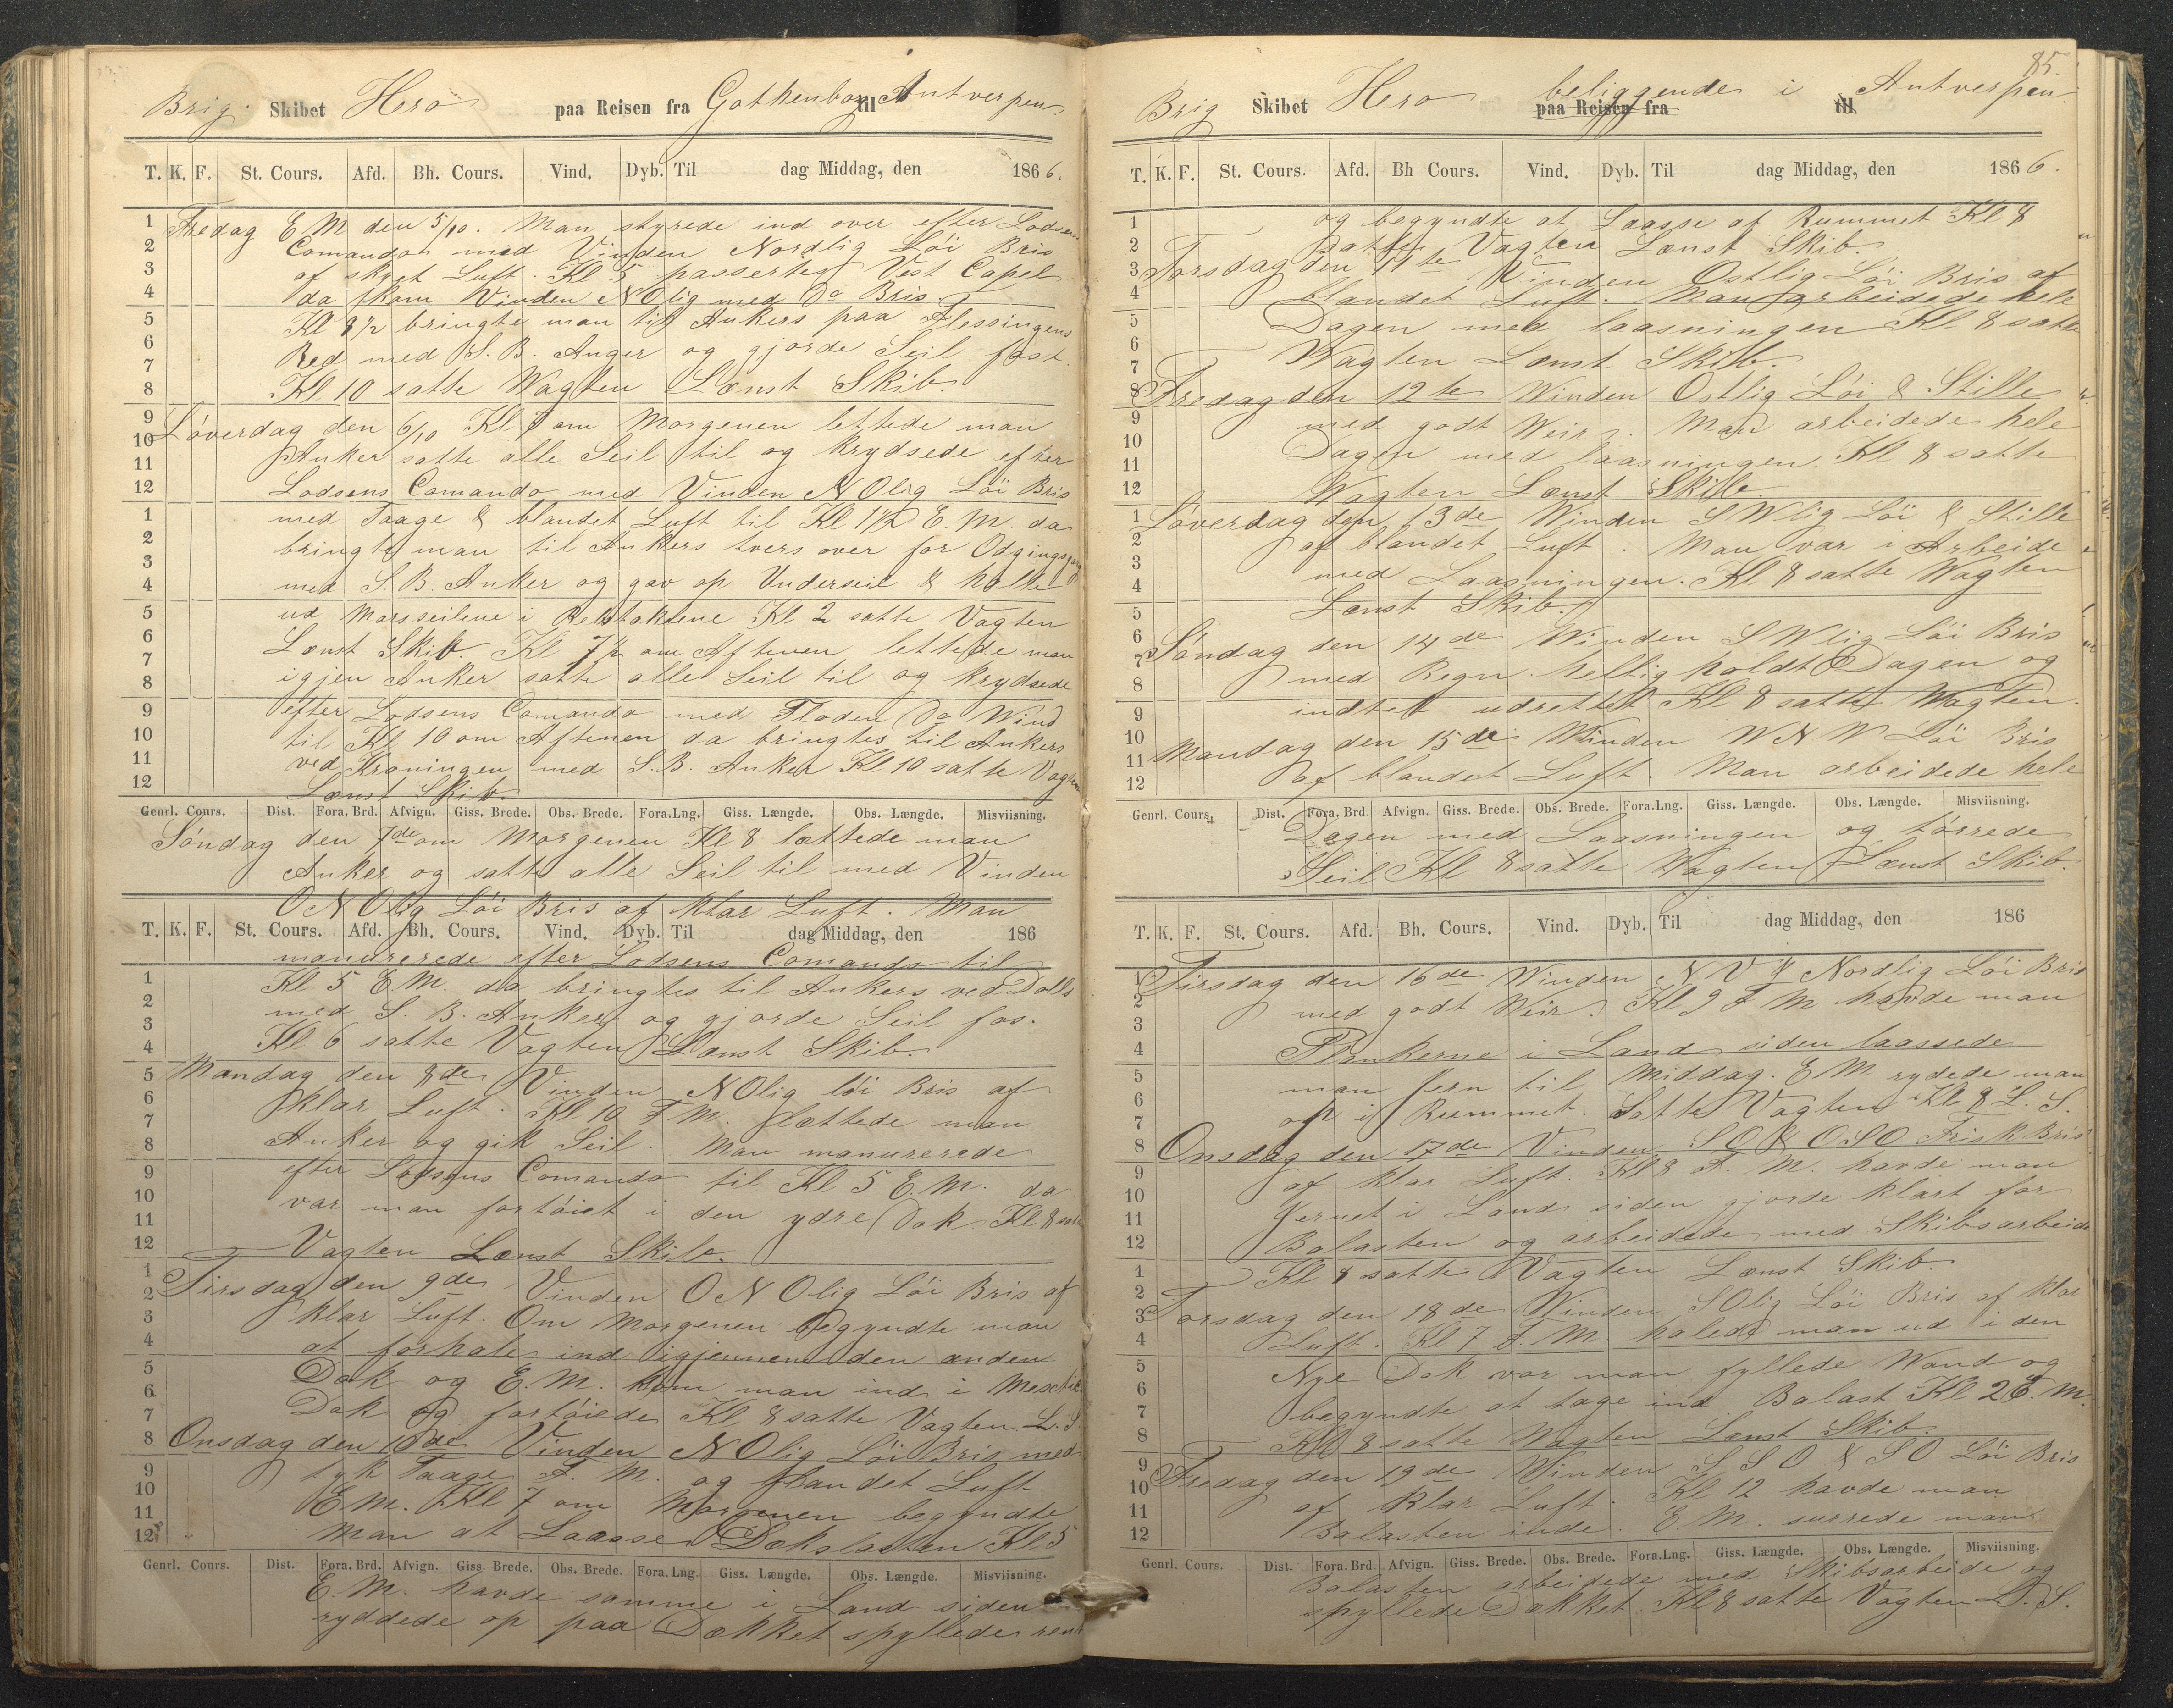 Brig Skibet Hero paa Reisen fra Gothenborg til Antverpen
T. K. F. St. Cours. Afd. Bh. Cours. Vind. Dyb. Til dag Middag, den 1866.
Fredag E M den 5/10. Man styrede ind over efter Lodsens
Comando med Vinden Nordlig Löi Bris
af skyet Luft. Kl 5 passertes Vest Capel
da kom Vinden N Olig med Do Bris
Kl 8 1/2 bringte man til Ankers paa Flessingens
Red med S. B. Anger og gjorde Seil fast.
Kl 10 satte Wagten Lænst Skib.
Löverdag den 6/10 Kl 7 om Morgenen lettede man
Anker satte alle Seil til og krydsede efter
Lodsens Comando med Vinden N Olig Löi Bris
med Taage & blandet Luft til Kl 1 1/2 E. M. da
bringte man til Ankers tvers over for
med S. B. Anker og gav op Underseil & holte
ud Marsseilene i Kl 2 satte Vagten
Lænst Skib. Kl 7 1/2 om Aftenen lettede man
igjen Anker satte alle Seil til og krydsede
efter Lodsens Comando med Floden Do Wind
til Kl 10 om Aftenen da bringtes til Ankers
ved Kroningen med S. B. Anker Kl 10 satte Vagten
Lænst Skib.
Genrl. Cours. Dist. Fora. Brd. Afvign. Giss. Brede. Obs. Brede. Fora.Lng. Giss. Længde. Obs. Længde. Misviisning.
Söndag den 7de om Morgenen Kl 8 lættede man
Anker og satte alle Seil til med Vinden
O N Olig Löi Bris af klar Luft. Man
T. K. F. St. Cours. Afd. Bh. Cours. Vind. Dyb. Til dag Middag, den 186
manurerede efter Lodsens Comando til
Kl 5 E. M. da bringtes til Ankers ved Dolls
med S. B. Anker og gjorde Seil fas.
Kl 6 satte Vagten Lænst Skib.
Mandag den 8de Vinden N Olig löi Bris af
klar Luft. Kl 10 F M. lættede man
Anker og gik Seil. Man manurerede
efter Lodsens Comando til Kl 5 E. M. da
var man fortöiet i den ydre Dok Kl 8 satte
Vagten Lænst Skib.
Tirsdag den 9de Vinden O N Olig Löi Bris af
klar Luft. Om Morgenen begyndte man
at forhale ind igjennem den anden
Dok og E. M. kom man ind i
Dok og fortöiede Kl 8 satte Vagten L. S
Onsdag den 10de Vinden N Olig Löi Bris med
tyk Taage F. M. og blandet Luft
E. M. Kl 7 om Morgenen begyndte
man at Laasse Dækslasten Kl 5
Genrl. Cours. Dist. Fora. Brd. Afvign. Giss. Brede. Obs. Brede. Fora. Lng. Giss. Længde. Obs. Længde. Misviisning.
E. M. havde samme i Land siden
ryddede op paa Dækket spyllede rent
85.
Brig Skibet Hero beliggende i Antverpen
paa Reisen fra til
T. K. F. St. Cours. Afd. Bh Cours. Vind. Dyb. Til dag Middag, den 1866.
og begyndte at Laasse af Rummet Kl 8
Satte Vagten Lænst Skib.
Torsdag den 11te Vinden Ostlig Löi Bris af
blandet Luft. Man arbeidede hele
Dagen med laasningen Kl 8 satte
Wagten Lænst Skib.
Fredag den 12te Winden Ostlig Löi & Stille
med godt Weir. Man arbeidede hele
Dagen med laasningen. Kl 8 satte
Wagten Lænst Skib.
Löverdag den 13de Winden S Wlig Löi & Stille
af blandet Luft. Man var i Arbeide
med Laasningen. Kl 8 satte Wagten
Lænst Skib.
Söndag den 14de Winden S Wlig Löi Bris
med Regn. helligholdt Dagen og
indtet udrettet Kl 8 satte Wagten.
Mandag den 15de Winden W N W Löi Bris
af blandet Luft. Man arbeidede hele
Genrl. Cours. Dist. Fora. Brd. Afvign. Giss. Brede. Obs. Brede. Fora.Lng. Giss. Længde. Obs. Længde. Misviisning.
Dagen med Laasningen og törrede
Seil Kl 8 satte Wagten Lænst Skib.
T. K. F. St. Cours. Afd. Bh. Cours. Vind. Dyb. Til dag Middag, den 186
Tirsdag den 16de Winden N V & Nordlig Löi Bris
med godt Weir. Kl 9 F M havde man
Plankerne i Land siden laassede
man Jern til Middag. E M rydede man
op i Rummet. Satte Vagten Kl 8 L. S.
Onsdag den 17de Vinden S O & O S O Frisk Bris
af klar Luft. Kl 8 F. M. havde man
Jernet i Land siden gjorde klart for
Balasten og arbeidede med Skibsarbeide
Kl 8 satte Vagten Lænst Skib.
Torsdag den 18de Vinden S Olig Löi Bris af klar
Luft. Kl 7 F. M. halede man ud i den
Nye Dok var man fyllede Wand og
begyndte at tage ind Balast Kl 2 E. M.
Kl 8 satte Wagten Lænst Skib.
Fredag den 19de Vinden S S O & S O Löi Bris
af klar Luft. Kl 12 havde man
Balasten inde. E. M. surrede man
Genrl. Cours. Dist. Fora. Brd Afvign. Giss. Brede. Obs. Brede. Fora.Lng. Giss. Længde. Obs. Længde. Misviisning.
Balasten arbeidede med Skibsarbeide og
spyllede Dækket. Kl 8 satte Vagten L. S.